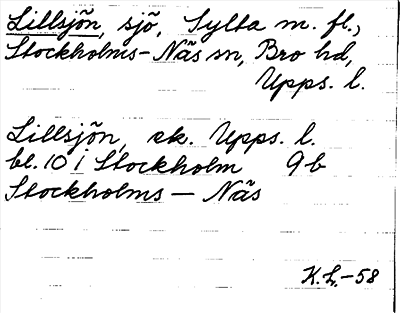 Lillsjön, sjö, Sylta m. fl.,
Stockholms-Näs sn, Bro hd,
Upps. l.
Lillsjön, ek. Upps. l.
bl. 10 i Stockholm 9b
Stockholms - Näs
K.L.-58